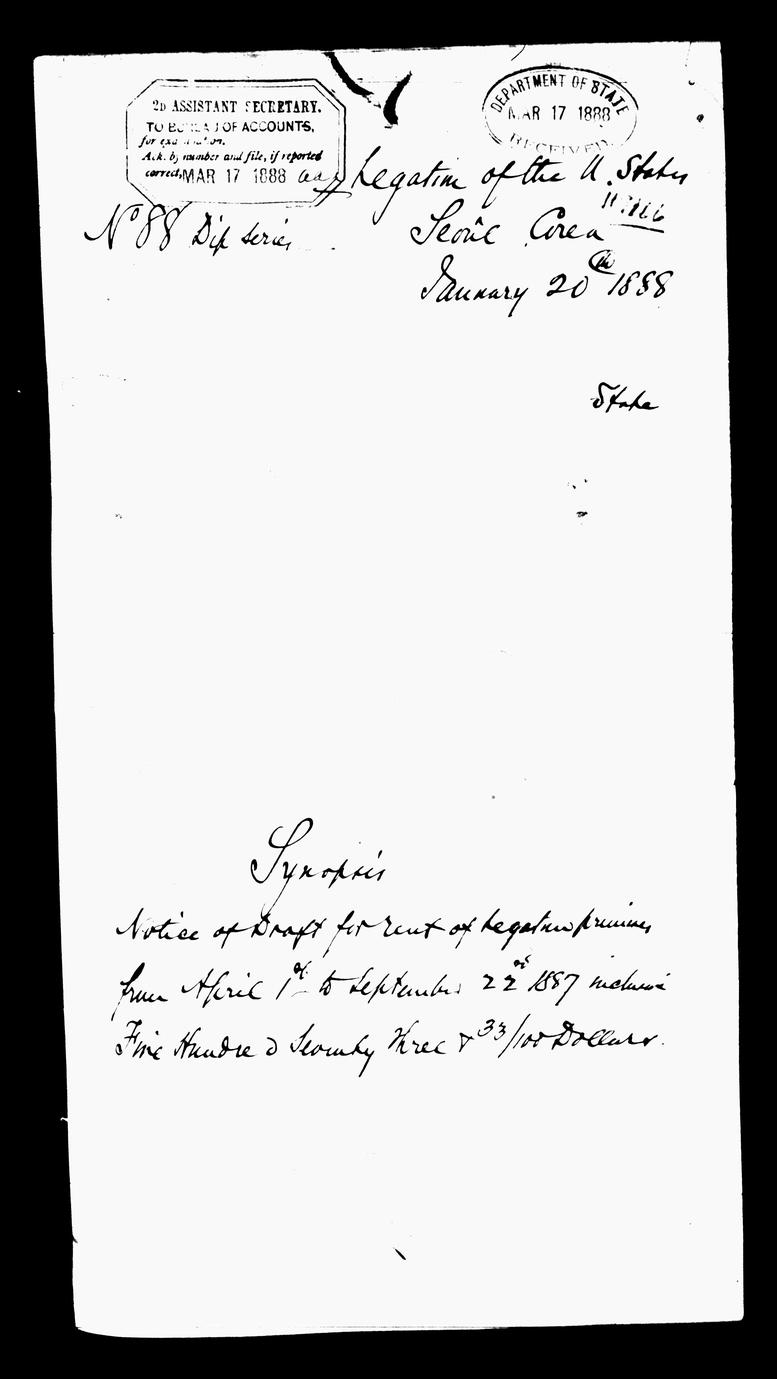 2D ASSISTANT SECRETARY.
TO BUREAU OF ACCOUNTS,
for examination.
Ack. by number and file, if reported
correct, MAR 17 1888
DEPARTMENT OF STATE
MAR 17 1888
RECEIVED
Legation of the U. States
Nº 88 Dip series
Seoûl Corea
January 20th 1888
State
Synopsis
Notice of Draft for rent of Legation premises
from April 1st to September 22nd 1887 inclusive
Five Hundred Seventy Three & 33/100 Dollars.